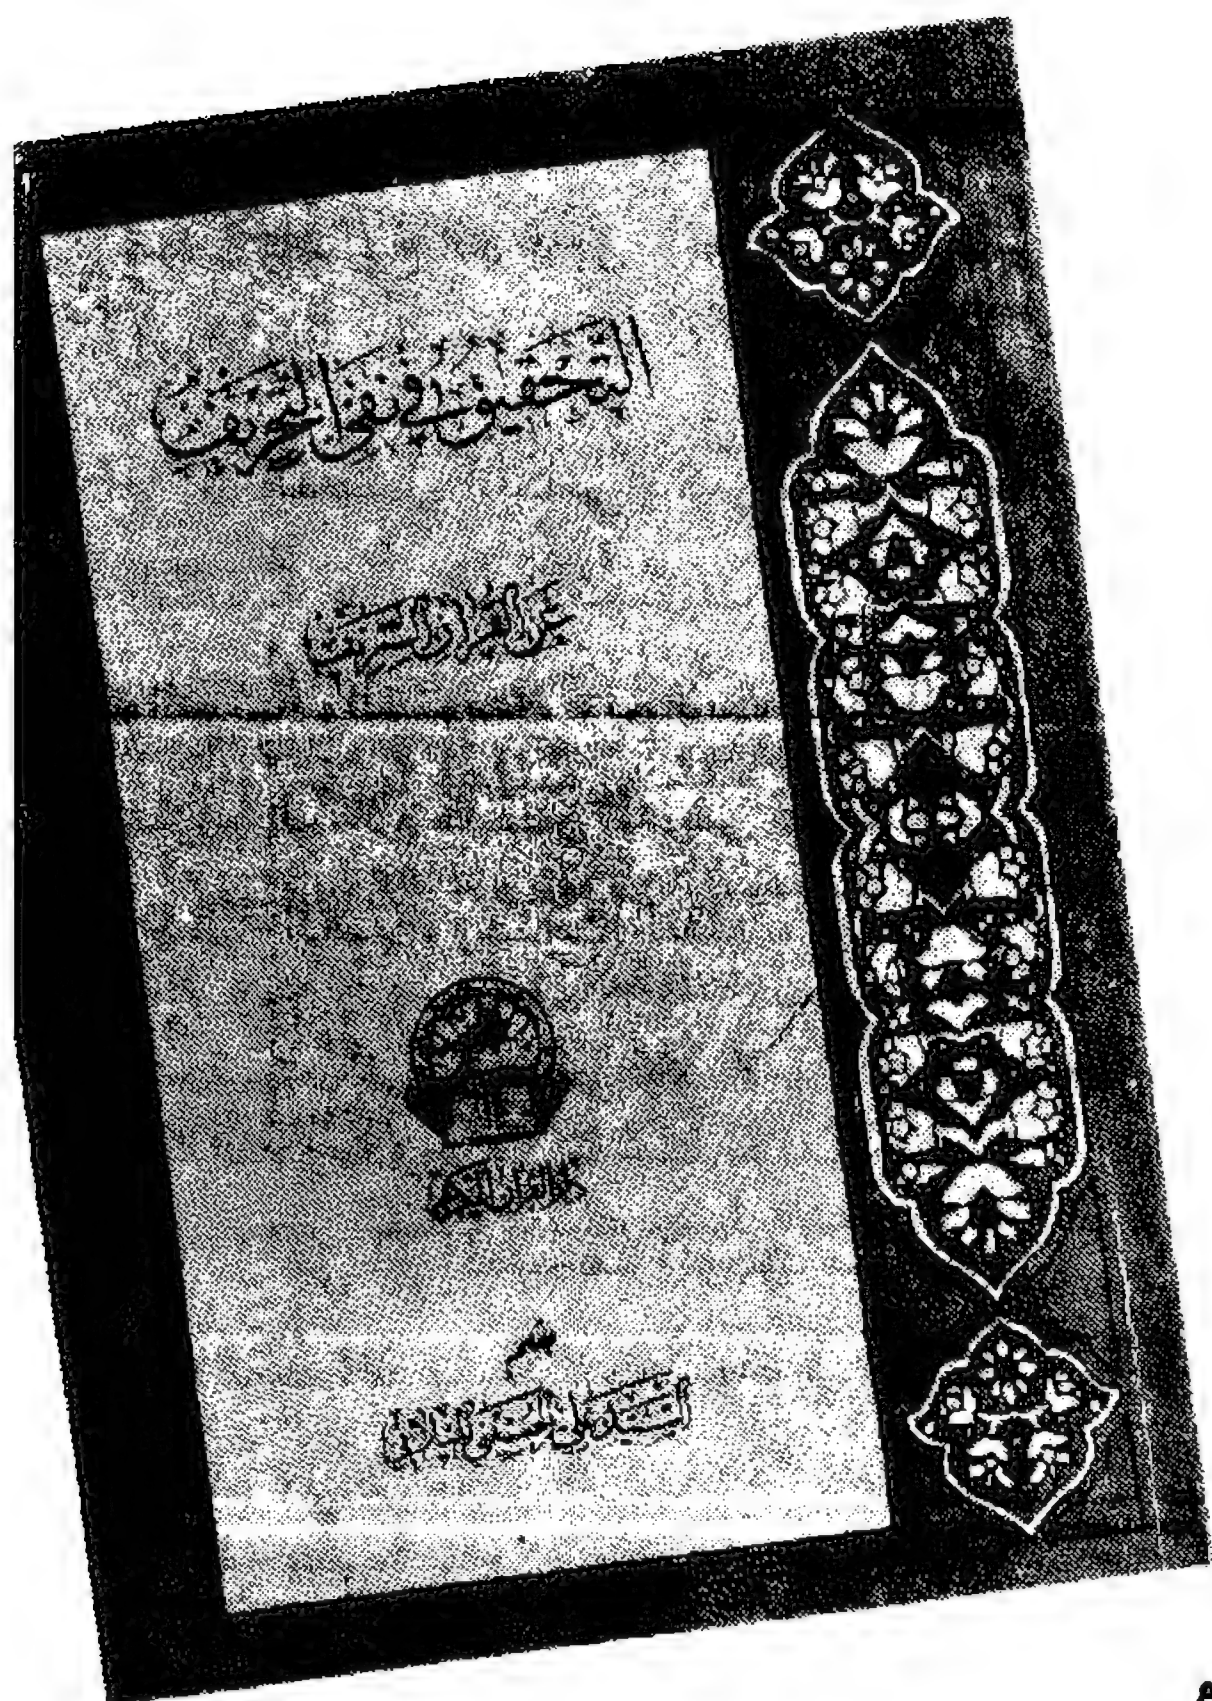 التحقيق في نفي التحريف
عن القرآن الشريف
دار القرآن الكريم
بقلم
السيد علي الحسيني الميلاني